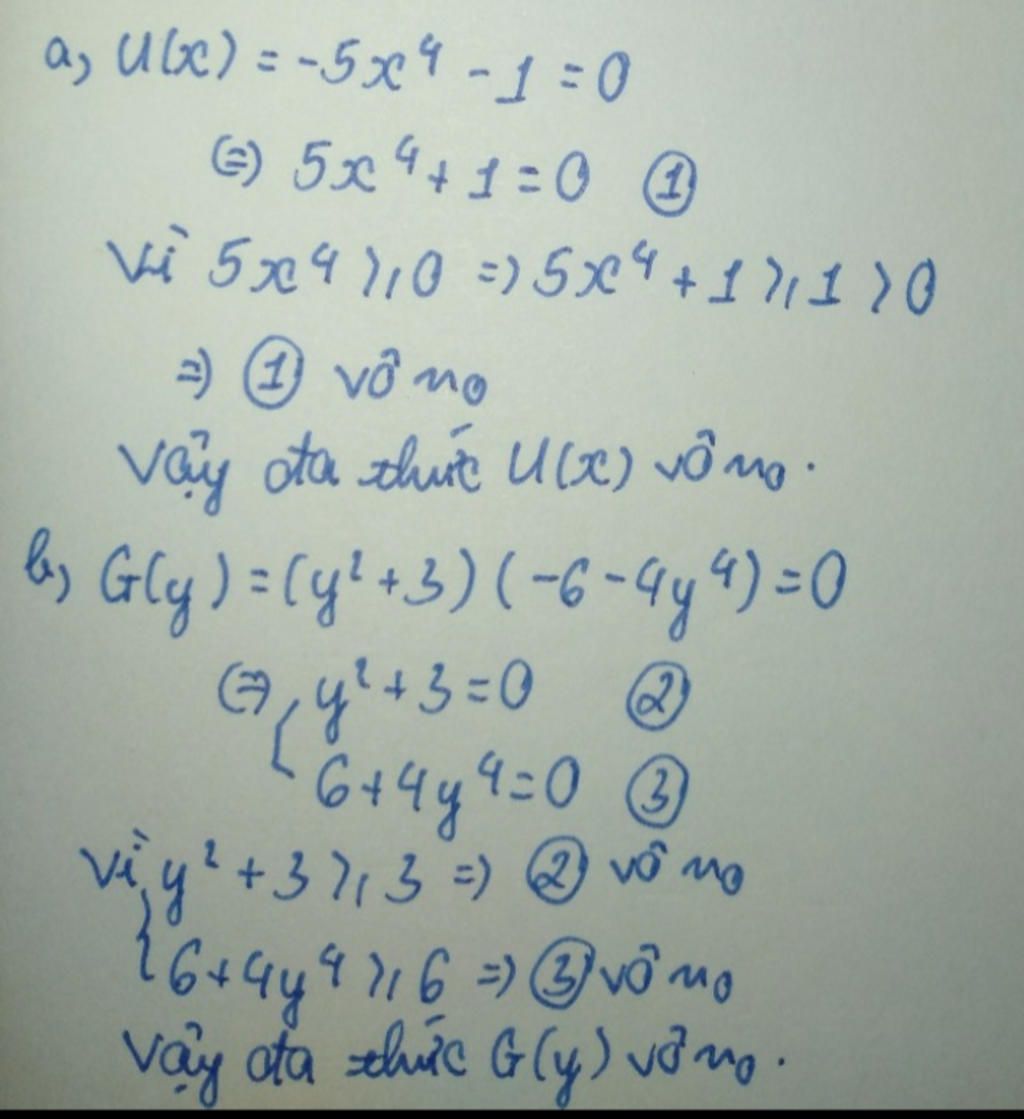 a, U(x) = -5x⁴ - 1 = 0
(=) 5x⁴ + 1 = 0 ①
Vì 5x⁴ ≥ 0 => 5x⁴ + 1 ≥ 1 > 0
=> ① vô no
Vậy đa thức U(x) vô no.
b, G(y) = (y² + 3) (-6 - 4y⁴) = 0
(=) [ y² + 3 = 0 ②
6 + 4y⁴ = 0 ③
Vì { y² + 3 ≥ 3 => ② vô no
6 + 4y⁴ ≥ 6 => ③ vô no
Vậy đa thức G(y) vô no.